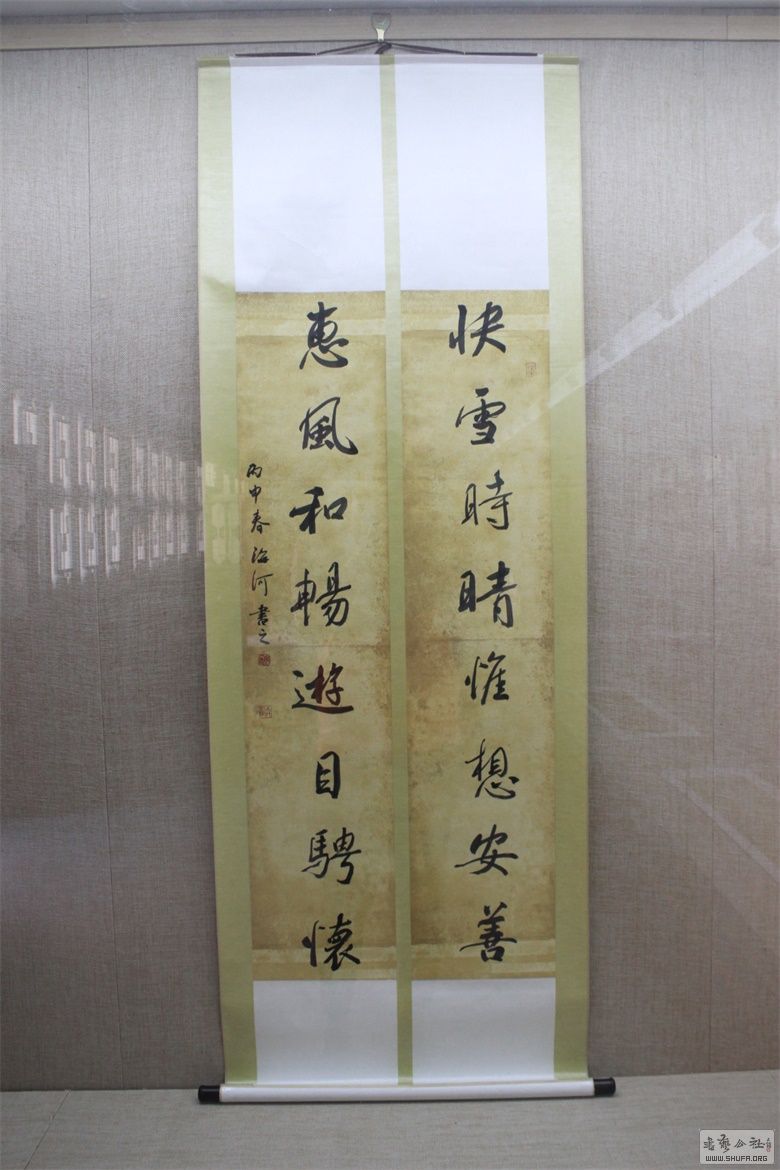 快雪時晴惟想安善
惠風和暢遊目騁懷
丙申春海河書之
書艺公社
WWW.SHUFA.ORG